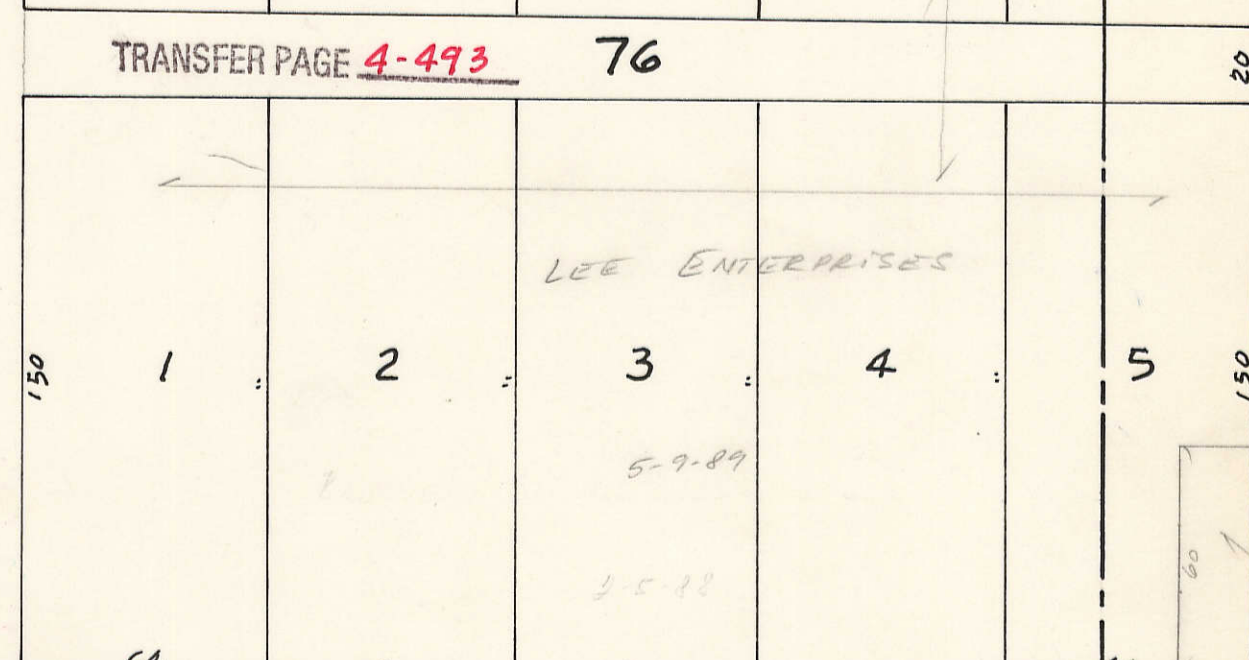 TRANSFER PAGE 4-493 76 20
LEE ENTERPRISES
150 1 2 3 4 5 150
5-9-89
60